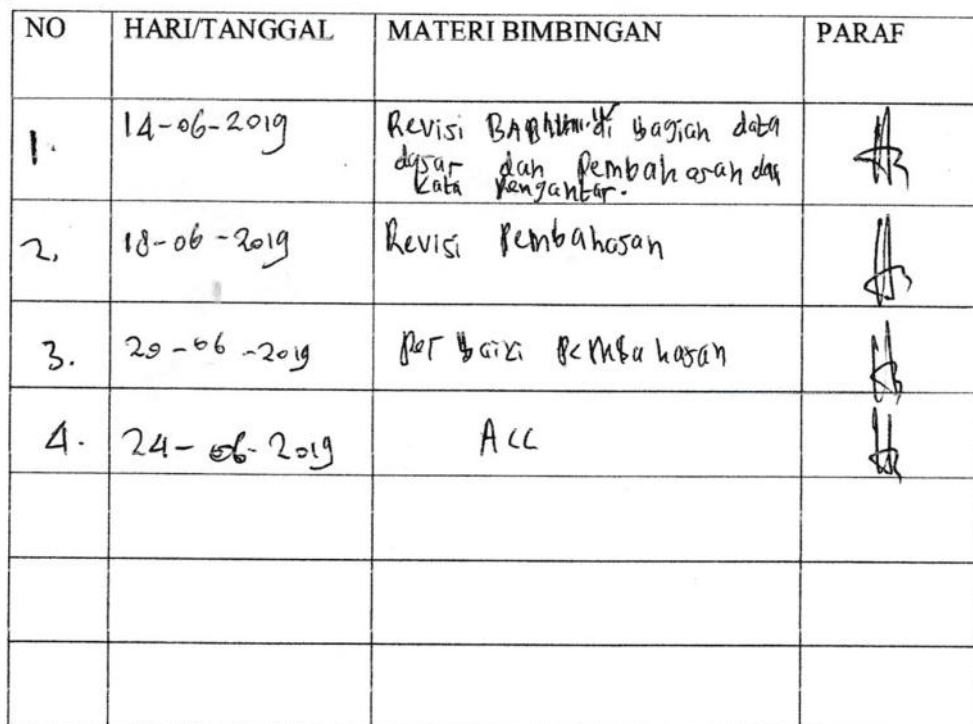 NO HARI/TANGGAL MATERI BIMBINGAN PARAF
1. 14-06-2019 Revisi bagian data
dasar dan Pembahasan dan
Kata Pengantar.
2. 18-06-2019 Revisi Pembahasan
3. 20-06-2019 Perbaiki Pembahasan
4. 24-06-2019 Acc